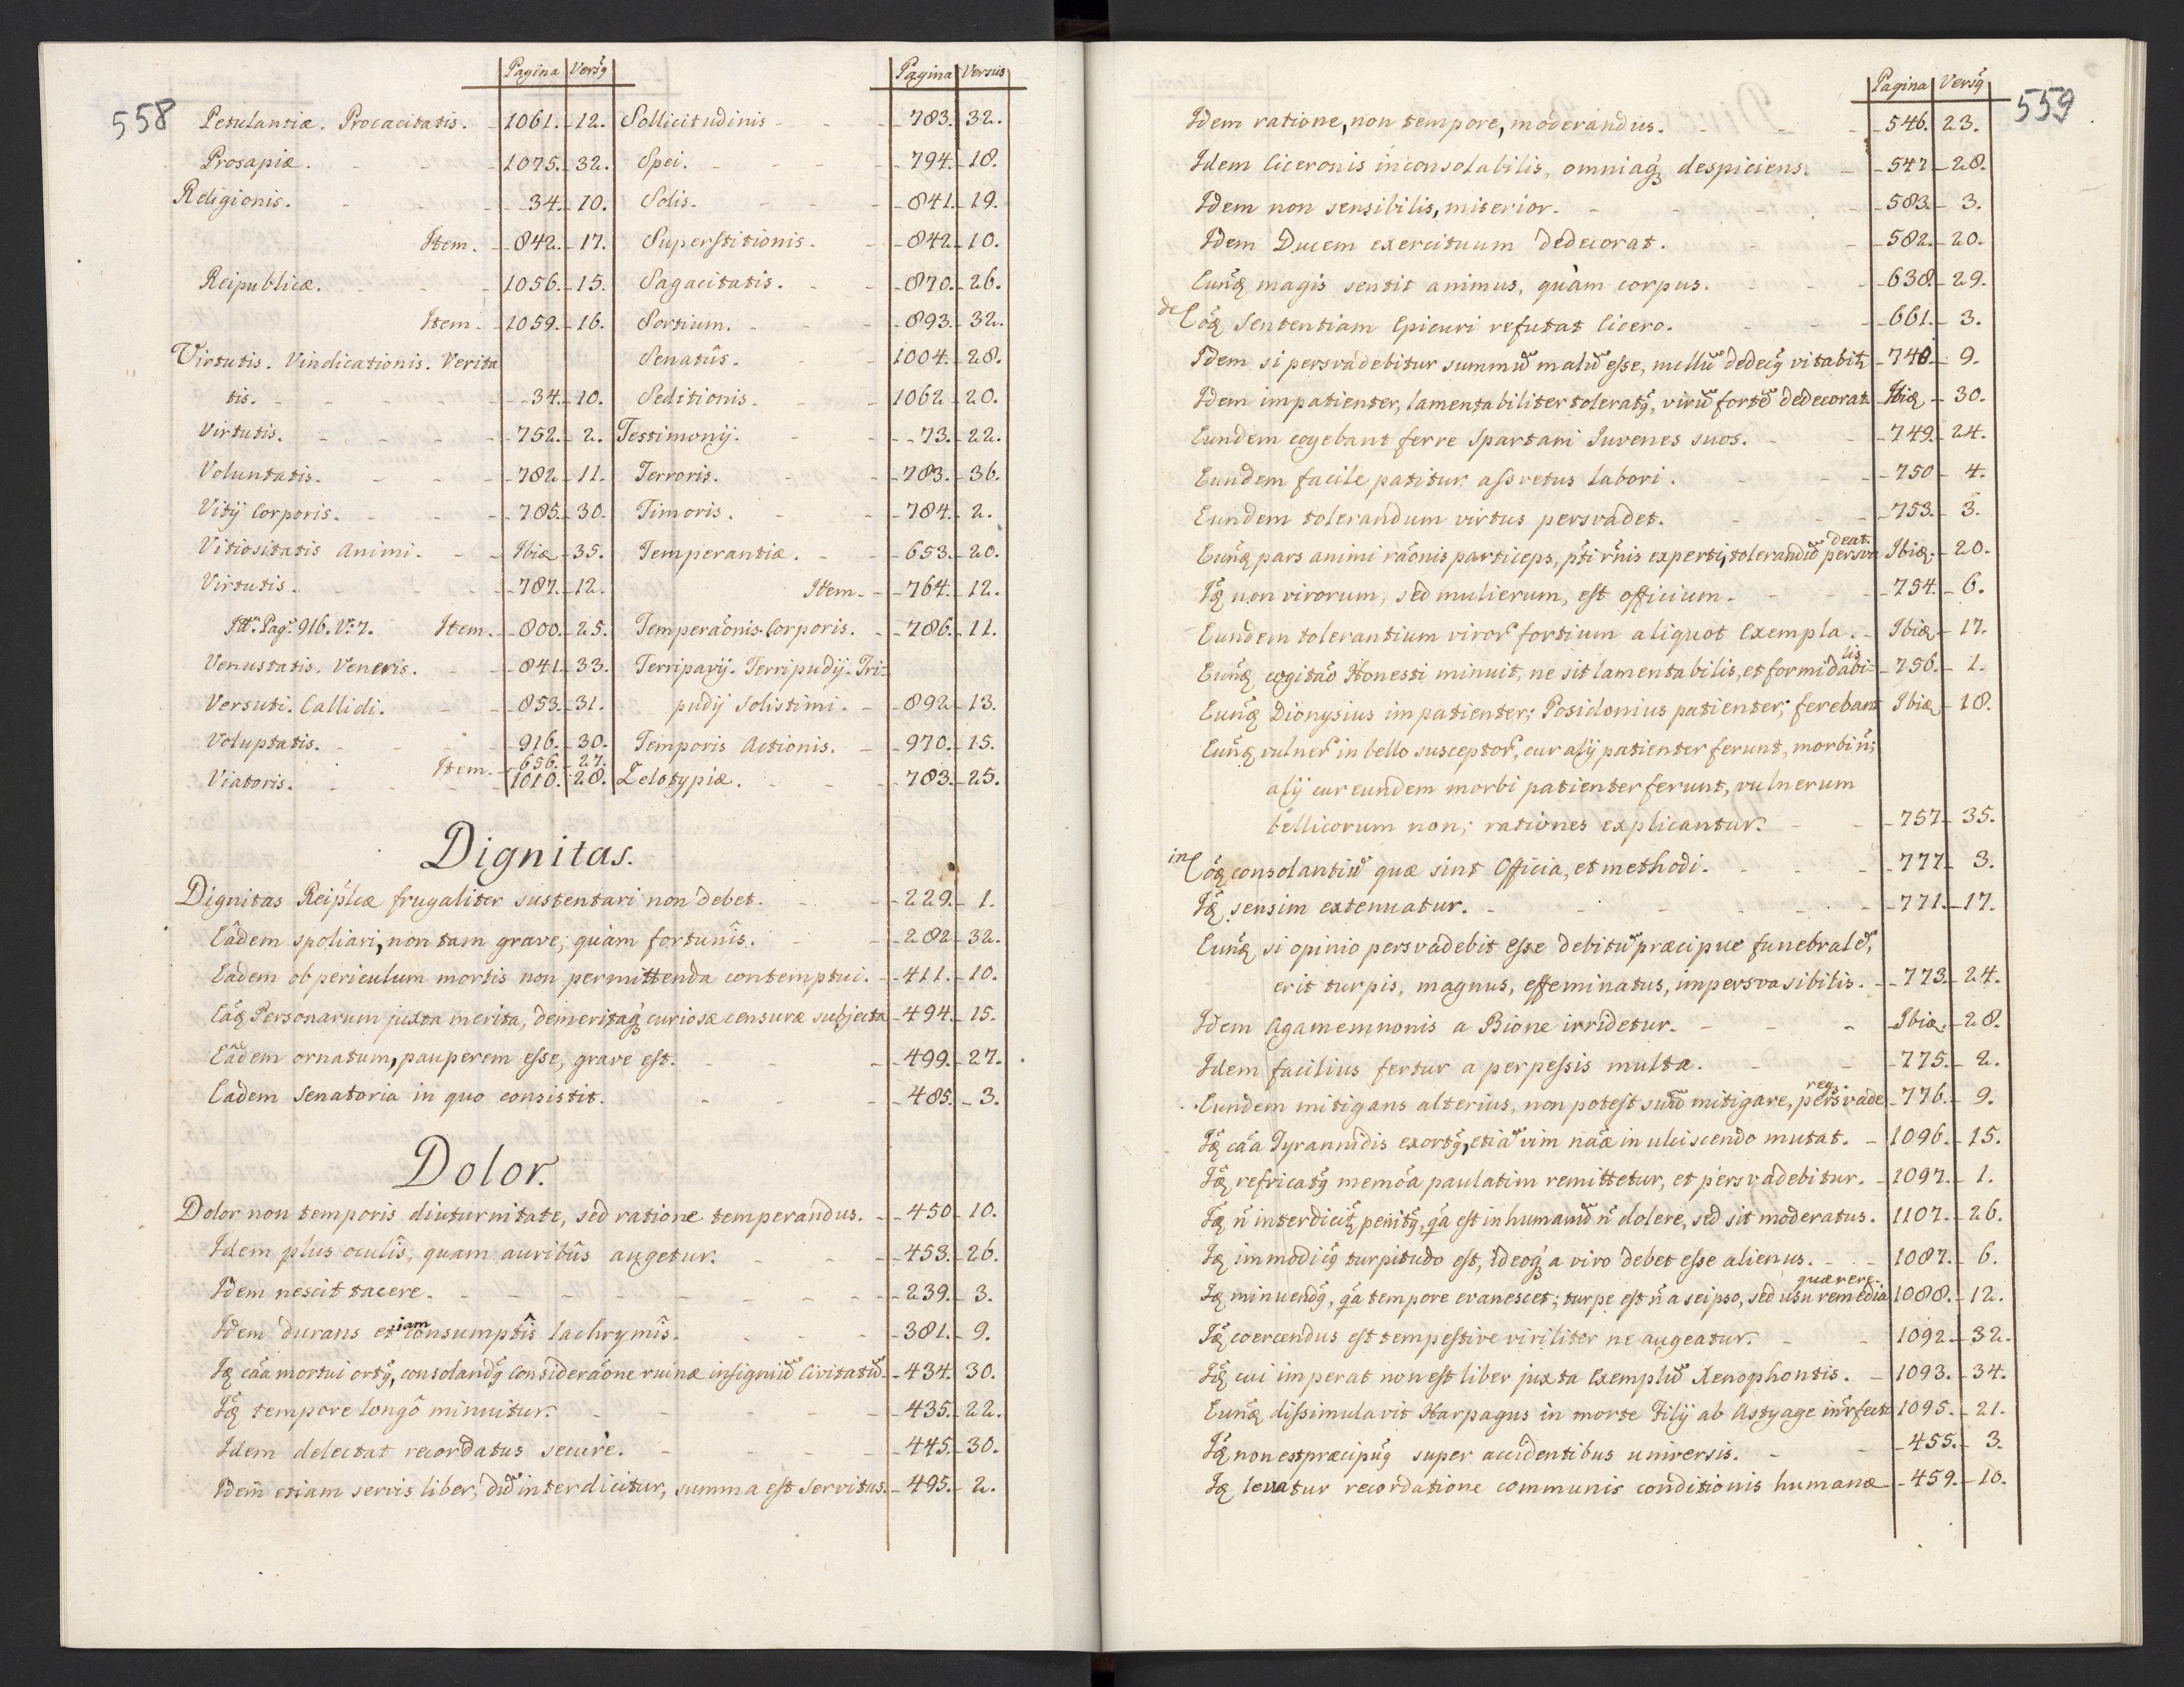 558
Pagina Versꝰ
Petulantiæ. Procacitatis. 1061. 12.
Prosapiæ. 1075. 32.
Religionis. 34. 10.
Item. 842. 17.
Reipublicæ. 1056. 15.
Item. 1059. 16.
Virtutis. Vindicationis. Verita
tis. 34. 10.
Virtutis. 752. 2.
Voluntatis. 782. 11.
Vitij Corporis. 785. 30.
Vitiositatis Animi. Ibiđ 35.
Virtutis. 787. 12.
Itē. Pag. 916. V. 7. Item. 800. 25.
Venustatis. Veneris. 841. 33.
Versuti. Callidi. 853. 31.
Voluptatis. 916. 30.
Item. 656. 27.
Viatoris. 1010. 28.
Pagina Versus
Sollicitudinis 783. 32.
Spei. 794. 18.
Solis. 841. 19.
Superstitionis. 842. 10.
Sagacitatis. 870. 26.
Sortium. 893. 32.
Senatûs. 1004. 28.
Seditionis. 1062. 20.
Testimonij. 73. 22.
Terroris. 783. 36.
Timoris. 784. 2.
Temperantiæ. 653. 20.
Item. 764. 12.
Temperaōnis Corporis. 786. 11.
Terripavij. Terripudij. Tri-
pudij Solistimi. 892. 13.
Temporis Actionis. 970. 15.
Zelotypiæ. 783. 25.
Dignitas.
Dignitas Reiplcæ frugaliter sustentari non debet. 229. 1.
Eâdem spoliari, non tam grave; quàm fortunîs. 282. 32.
Eadem ob periculum mortis non permittenda contemptui. 411. 10.
Eađ Personarum juxta merita, demeritaq́ curiosæ censuræ subjecta 494. 15.
Eâdem ornatum, pauperem esse, grave est. 499. 27.
Eadem Senatoria in quo consistit. 485. 3.
Dolor.
Dolor non temporis diuturnitate, sed ratione temperandus. 450. 10.
Idem plus oculîs, quam auribûs augetur. 453. 26.
Idem nescit tacere. 239. 3.
Idem durans etiam consumptîs lachrymîs. 381. 9.
Iđ cāa mortui ortꝰ, consolandꝰ consideraōne ruinæ insigniū Civitatū. 434. 30.
Iđ tempore longô minuitur. 435. 22.
Idem delectat recordatus securè. 445. 30.
Idem etiam servis liber, dū interdicitur, summa est Servitus. 495. 2.
559
Pagina Versꝰ
Idem ratione, non tempore, moderandus. 546. 23.
Idem Ciceronis inconsolabilis, omniaq́ despiciens. 547 28.
Idem non sensibilis, miserior. 583. 3.
Idem Ducem exercituum dedecorat. 582. 20.
Eunđ magis sentit animus, quàm corpus. 638. 29.
de Eōđ Sententiam Epicuri refutat Cicero. 661. 3.
Idem si persvadebitur summū malū esse, nullū dedecꝰ vitabit 748. 9.
Idem impatienter, lamentabiliter toleratꝰ, virū fortē dedecorat. Ibiđ 30.
Eundem cogebant ferre Spartani Iuvenes suos. 749. 24.
Eundem facile patitur assvetus labori. 750 4.
Eundem tolerandum virtus persvadet. 753. 3.
Eunđ pars animi raōnis particeps, pti rnis experti, tolerandū persvadeat. Ibiđ. 20.
Iđ non virorum, sed mulierum, est officium. 754. 6.
Eundem tolerantium viroŕ fortium aliquot Exempla. Ibiđ 17.
Eunđ cogitāo Honesti minuit, ne sit lamentabilis, et formidabilis 756. 1.
Eunđ Dionysius impatienter; Posidonius patienter; ferebant Ibiđ 18.
Eunđ vulneŕ in bello susceptoŕ, cur alij patienter ferunt, morbi n̄;
alij cur eundem morbi patienter ferunt, vulnerum
bellicorum non; rationes explicantur. 757. 35.
in Eōđ consolantiū quæ sint Officia, et methodi. 777. 3.
Iđ sensim extenuatur. 771. 17.
Eunđ si opinio persvadebit esse debitū præcipue funebralē,
erit turpis, magnus, effeminatus, impersvasibilis. 773. 24.
Idem Agamemnonis a Bione irridetur. Ibiđ. 28.
Idem facilius fertur a perpessis multa. 775. 2.
Eundem mitigans alterius, non potest suū mitigare, persvadereq. 776. 9.
Iđ cāa Tyrannidis exortꝰ, etiā vim nāæ in ulciscendo mutat. 1096. 15.
Iđ refricatꝰ memōa paulatim remittetur, et persvadebitur. 1097. 1.
Iđ n̄ interdicit penitꝰ, qa est inhumanū n̄ dolere, sed sit moderatus. 1107. 26.
Iđ immodicꝰ turpitudo est, ideoq́ a viro debet esse alienus. 1087. 6.
Iđ minuendꝰ, qa tempore evanescet; turpe est n̄ a seipso, sed usu remedia quærere. 1088. 12.
Iđ coercendus est tempestive viriliter ne augeatur. 1092. 32.
Iđ cui imperat non est liber juxta Exemplū Xenophontis. 1093. 34.
Eunđ dissimulavit Harpagus in morte Filij ab Astyage intrfecti 1095. 21.
Iđ non est præcipuꝰ super accidentibus universis. 455. 3.
Iđ levatur recordatione communis conditionis humanæ 459. 10.